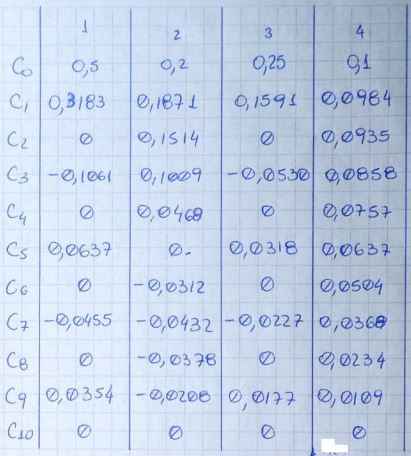 1 2 3 4
C0 0,5 0,2 0,25 0,1
C1 0,3183 0,1871 0,1591 0,0984
C2 0 0,1514 0 0,0935
C3 -0,1061 0,1009 -0,0530 0,0858
C4 0 0,0468 0 0,0757
C5 0,0637 0. 0,0318 0,0637
C6 0 -0,0312 0 0,0504
C7 -0,0455 -0,0432 -0,0227 0,0368
C8 0 -0,0378 0 0,0234
C9 0,0354 -0,0208 0,0177 0,0109
C10 0 0 0 0